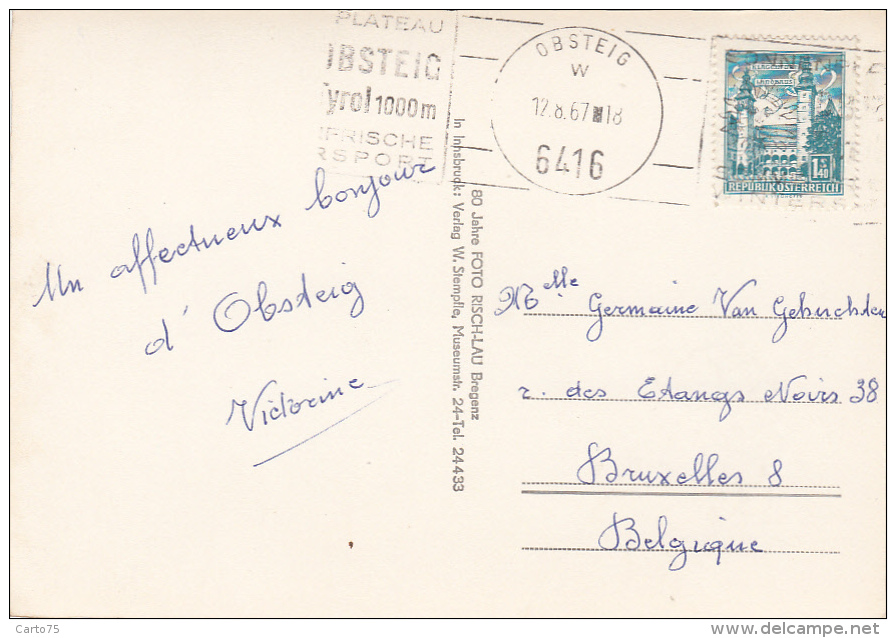 PLATEAU
OBSTEIG
Tyrol 1000m
FRISCHE
RSPORT
OBSTEIG
W
12.8.67 18
6416
KLAGENFURT
LANDHAUS
1.40
REPUBLIK ÖSTERREICH
Un affectueux bonjour
d'Obsteig
Victorine
80 Jahre FOTO RISCH-LAU Bregenz
In Innsbruck: Verlag W. Stempfle, Museumstr. 24-Tel. 24433
Melle Germaine Van Gebuchten
r. des Etangs Noirs 38
Bruxelles 8
Belgique
Carto75
delcampe.net